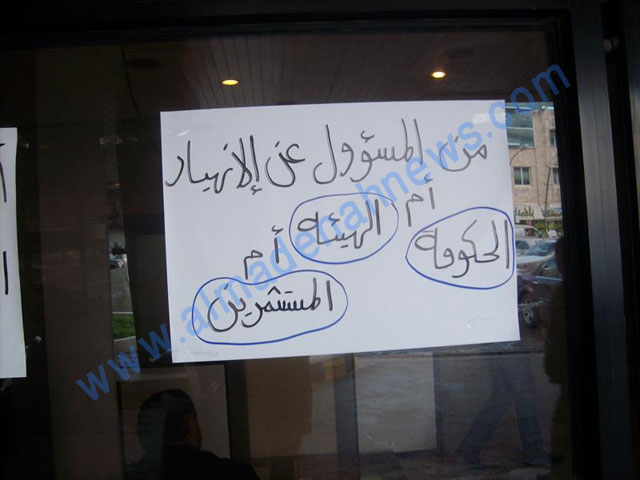 من المسؤول عن الإنهيار
الحكومة أم الهيئة أم
المستثمرين
www.almadenahnews.com